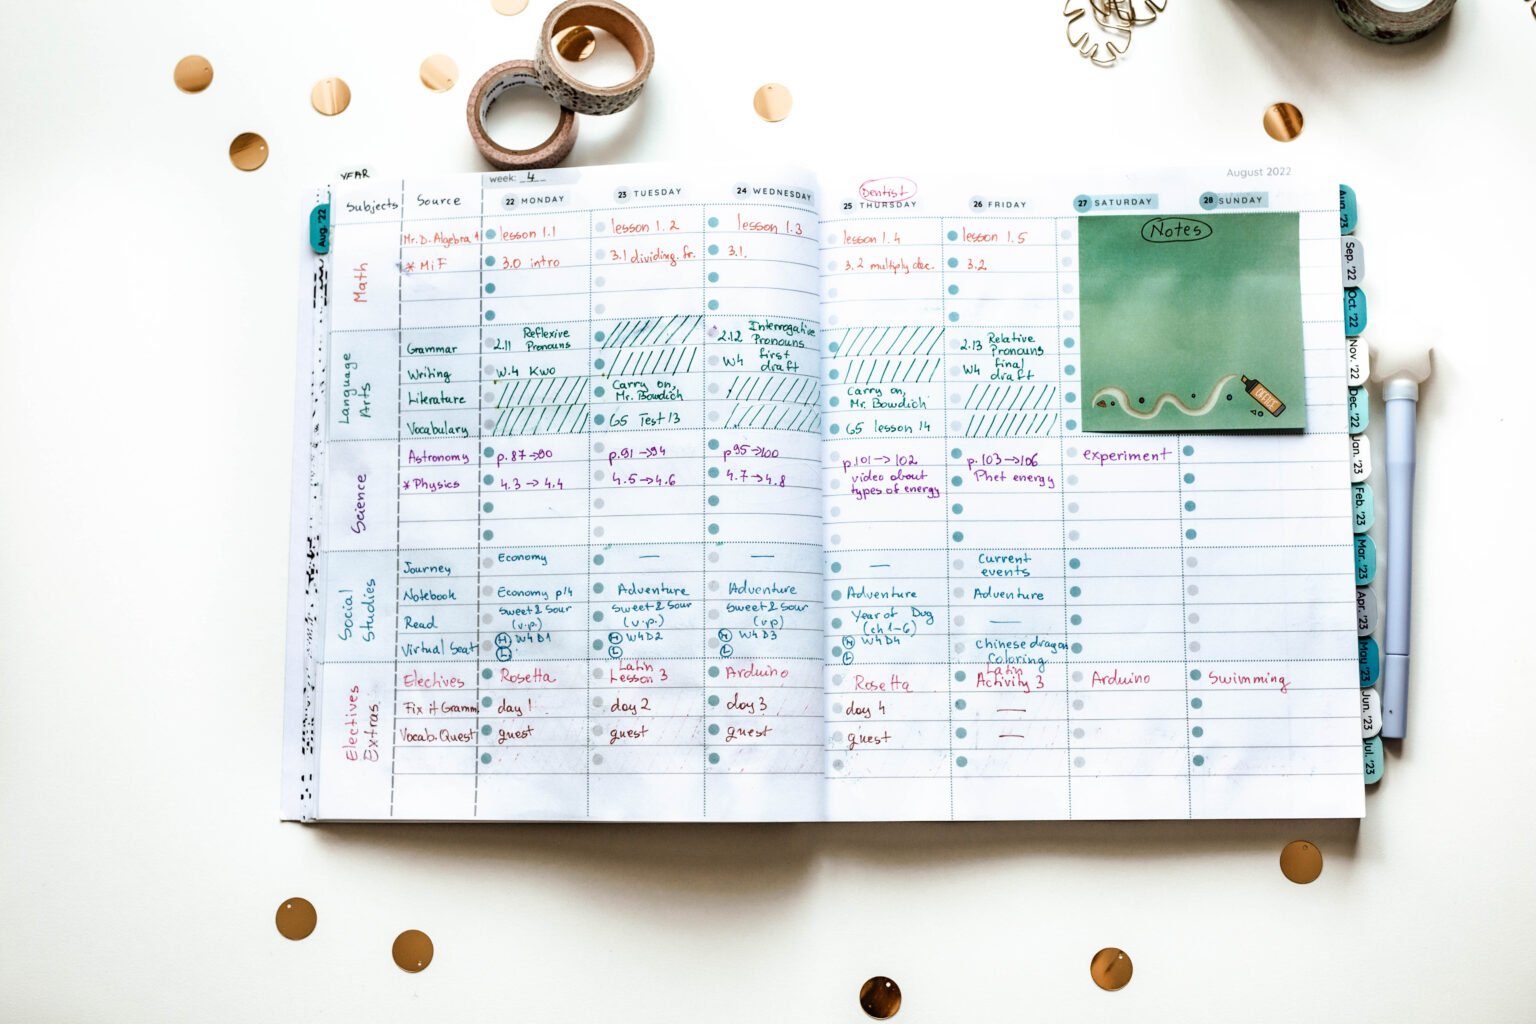 YEAR
week: 4
August 2022
Dentist
Subjects
Source
22 MONDAY
23 TUESDAY
24 WEDNESDAY
25 THURSDAY
26 FRIDAY
27 SATURDAY
28 SUNDAY
Aug. '22
Math
Mr. D. Algebra 1
lesson 1.1
lesson 1.2
lesson 1.3
lesson 1.4
lesson 1.5
* MiF
3.0 intro
3.1 dividing fr.
3.1.
3.2 multiply dec.
3.2
Notes
Language
Arts
Grammar
2.11 Reflexive
Pronouns
2.12 Interrogative
Pronouns
2.13 Relative
Pronouns
Writing
W.4 KWO
W4 first
draft
W4 final
draft
Literature
Carry on,
Mr. Bowdich
Carry on,
Mr. Bowdich
Vocabulary
G5 Test 13
G5 lesson 14
Science
Astronomy
p. 87→90
p. 91→94
p 95→100
p. 101→102
video about
types of energy
p. 103→106
experiment
* Physics
4.3→4.4
4.5→4.6
4.7→4.8
Phet energy
Social
Studies
Journey
Economy
—
—
—
Current
events
Notebook
Economy p14
Adventure
Adventure
Adventure
Adventure
Read
Sweet & Sour
(v.p.)
Sweet & Sour
(v.p.)
Sweet & Sour
(v.p)
Year of Dog
(ch 1-6)
—
Virtual Seat
H W4D1
L
H W4D2
L
H W4D3
L
H W4D4
L
Chinese dragon
Coloring
Electives
Extras
Electives
Rosetta
Latin
Lesson 3
Arduino
Rosetta
Latin
Activity 3
Arduino
Swimming
Fix it Gramm.
day 1
day 2
day 3
day 4
—
Vocab. Quest
quest
quest
quest
quest
—
Sep. '22
Oct. '22
Nov. '22
Dec. '22
Jan. '23
Feb. '23
Mar. '23
Apr. '23
May '23
Jun. '23
Jul. '23